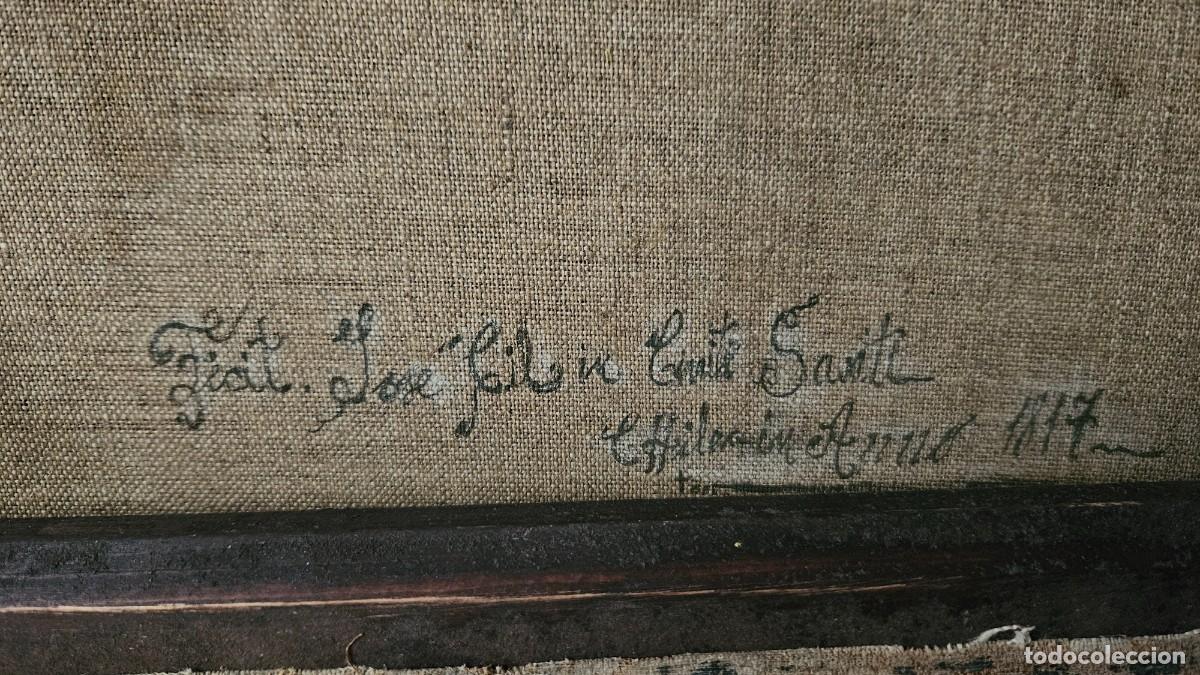 Fecit. Jose Gil in Civit Santi
Chile in Anno 1817
todocoleccion